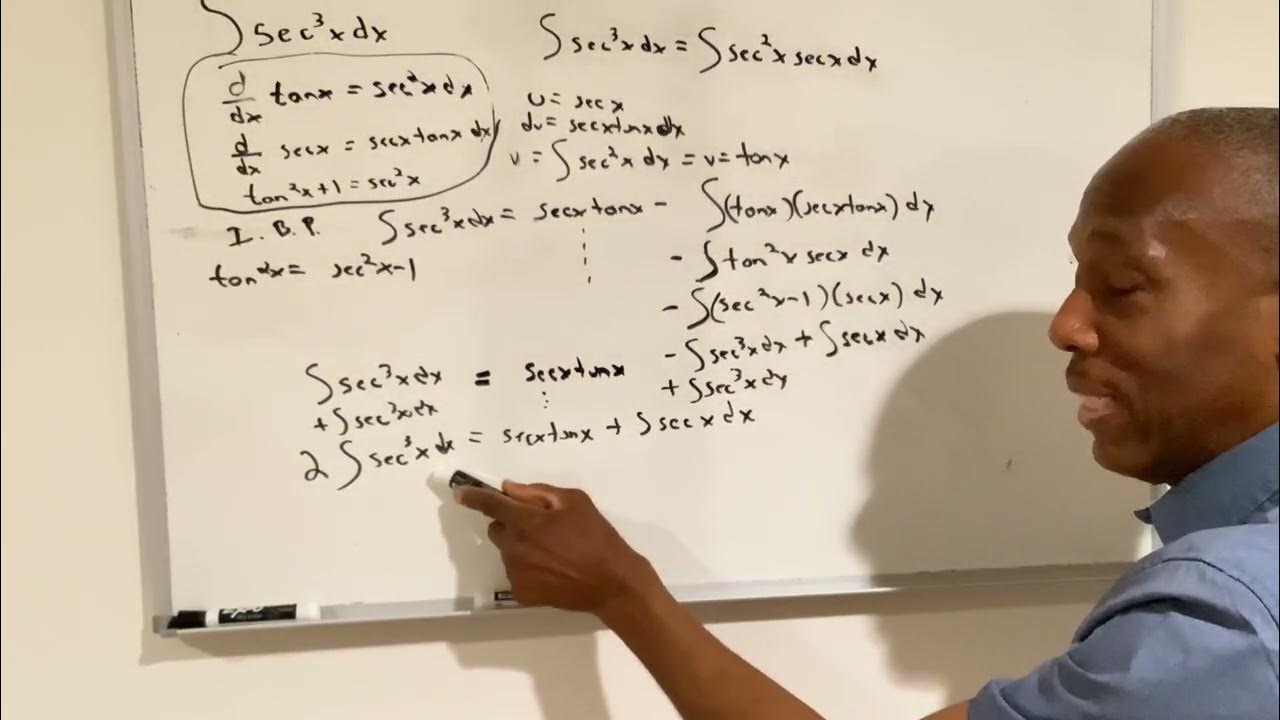 ∫ sec³x dx
d/dx tanx = sec²x dx
d/dx secx = secxtanx dx
tan²x+1 = sec²x
∫ sec³x dx = ∫ sec²x secx dx
u = secx
du = secxtanx dx
v = ∫ sec²x dx = v = tanx
I.B.P. ∫ sec³x dx = secxtanx - ∫(tanx)(secxtanx) dx
tan²x = sec²x-1
- ∫ tan²x secx dx
- ∫(sec²x-1)(secx) dx
- ∫ sec³x dx + ∫ secx dx
∫ sec³x dx = secxtanx
+ ∫ sec³x dx
+ ∫ sec³x dx
2 ∫ sec³x dx = secxtanx + ∫ secx dx
EXPO